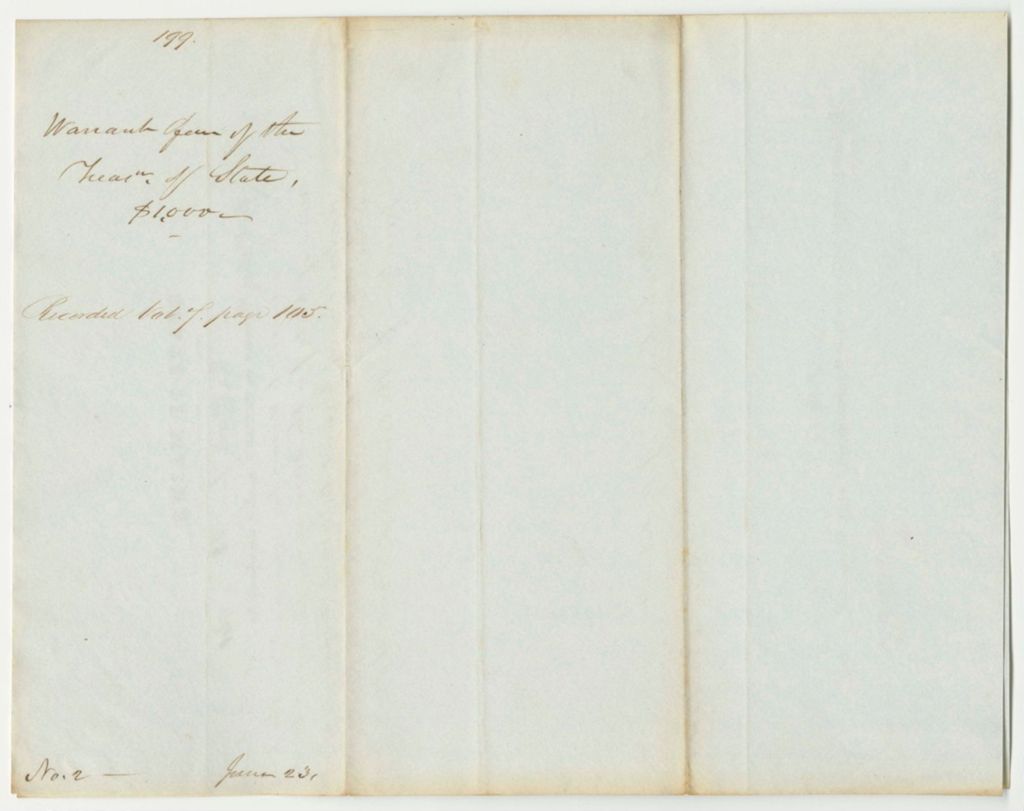 199.
Warrant favr of the
Treasr. of State,
$1,000—
Recorded Vol. 7. page 105.
No. 2 —
June 23,